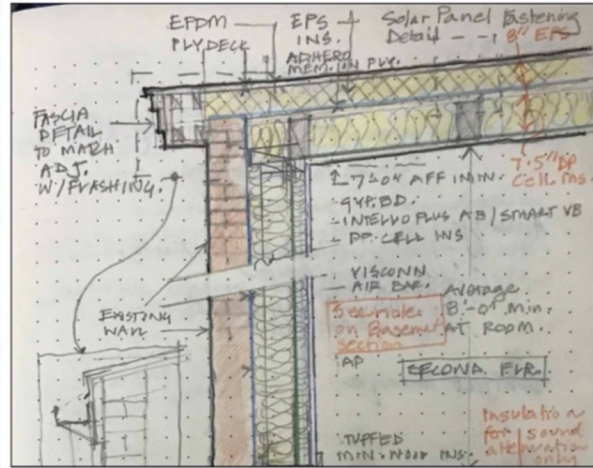 EPDM
PLY DECK
EPS
INS.
ADHERO
MEM. ON PLY.
Solar Panel Fastening
Detail
8" EPS
FASCIA
DETAIL
TO MATCH
ADJ.
W/FLASHING.
7.5" DP
Cell. Ins.
7'-0" AFF IN MIN.
GYP. BD.
INTELLO PLUS AB/SMART VB
DP. CELL INS
VISCONN
AIR BAR.
Average
8'-0" Min.
AT ROOM.
See note
on Basement
section
EXISTING
WALL
SECOND. FLR.
Insulation
for sound
attenuation
only
MIN. WOOL INS.